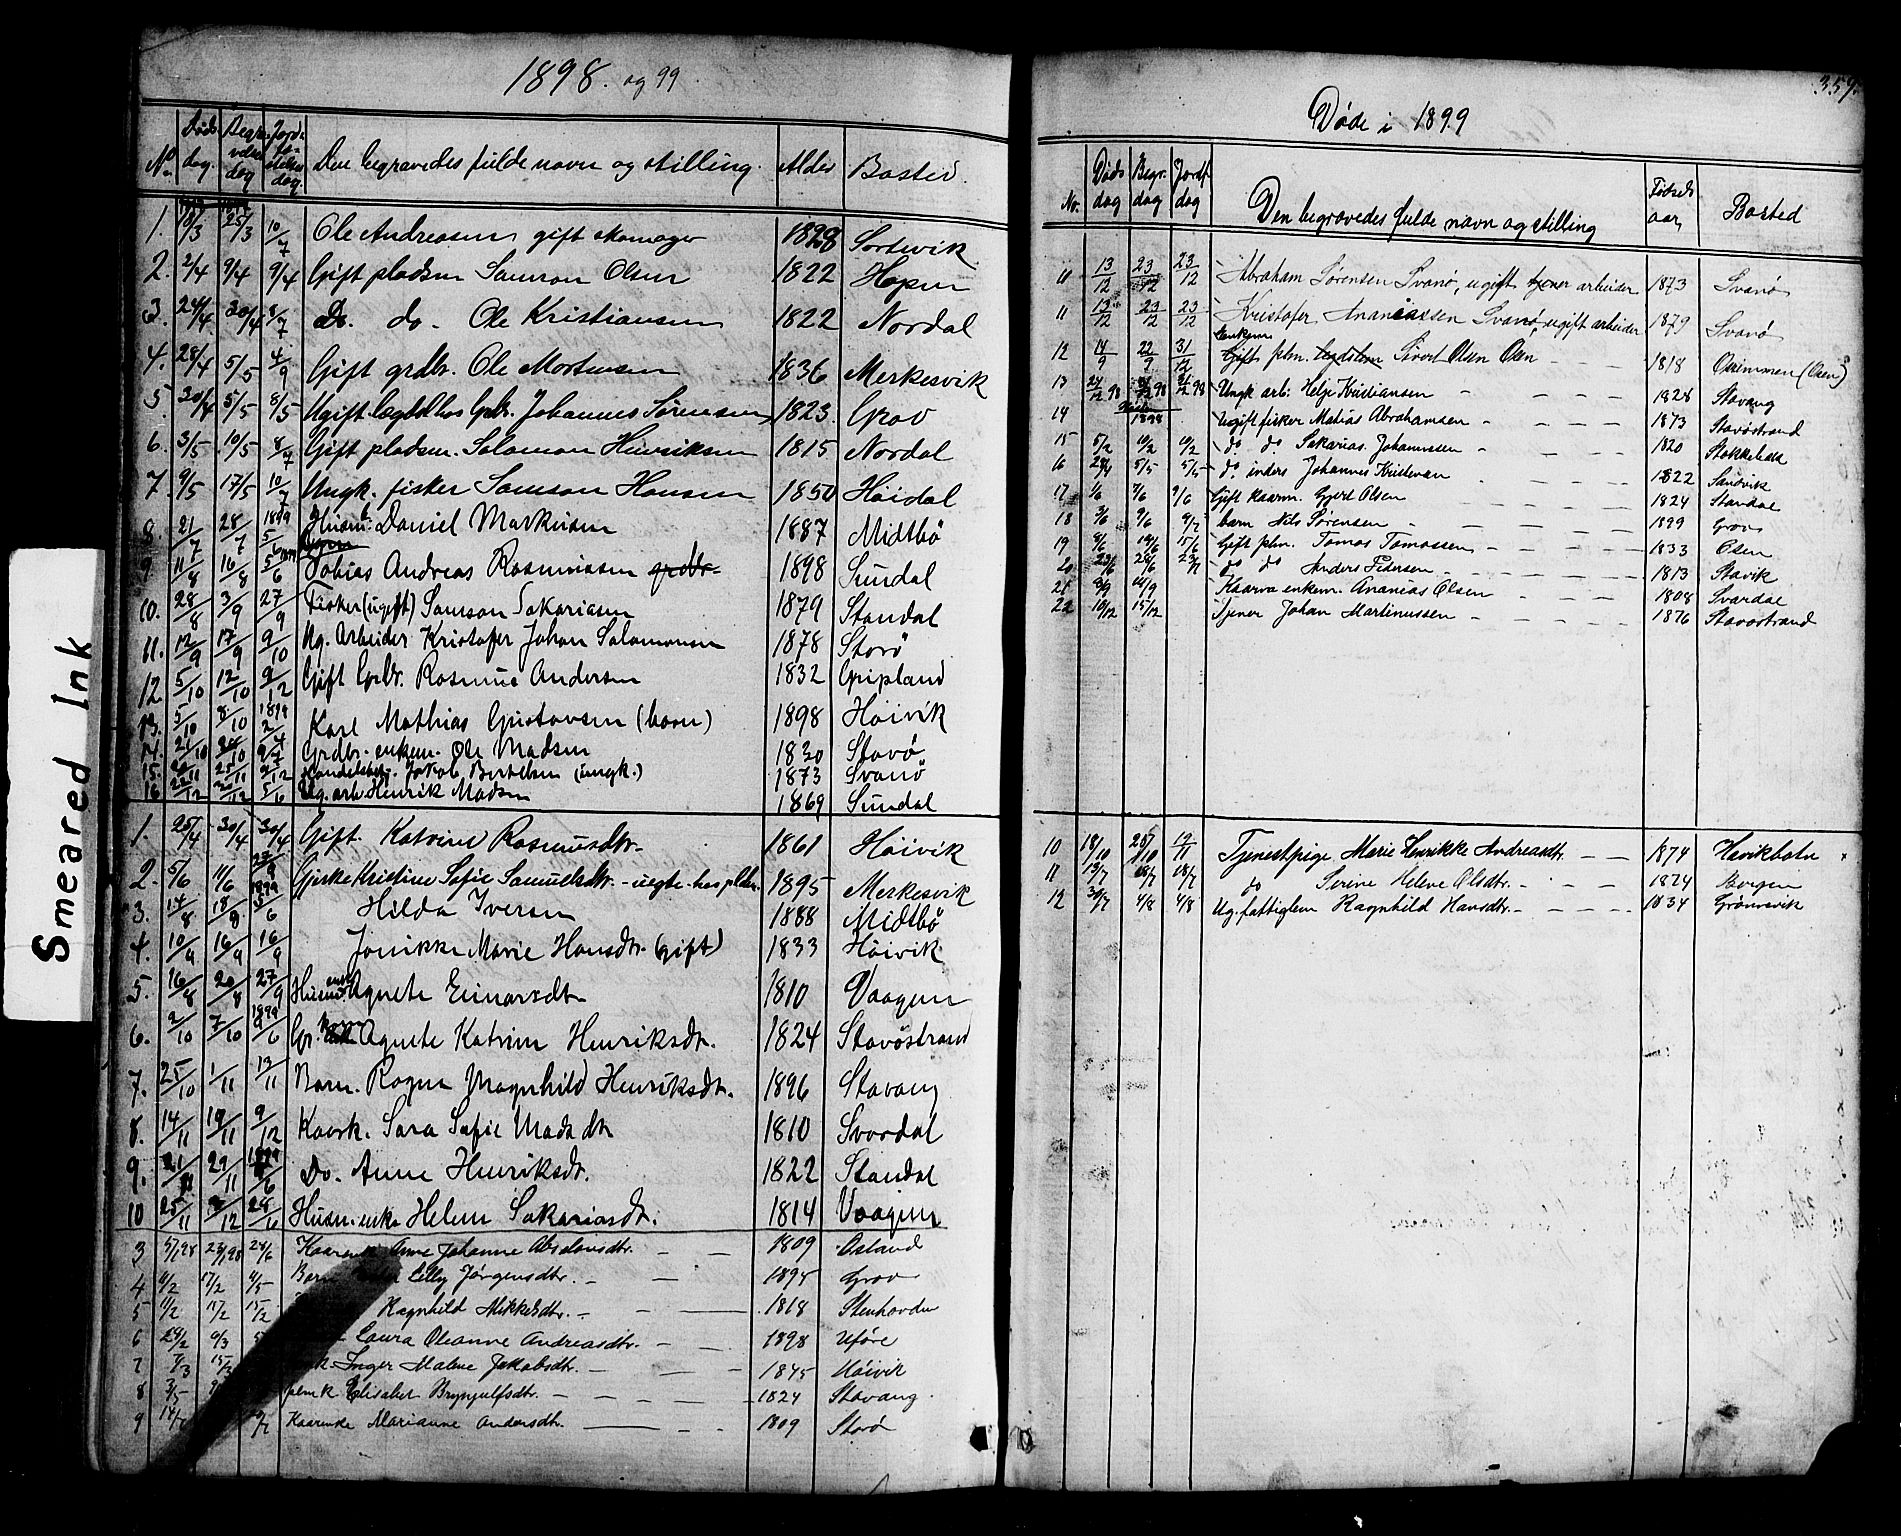 1898. og 99
No. Døds dag. Begravelses dag Jordfæstelses dag. Den begravedes fulde navn og stilling. Alder Bosted.
1. 18/3 25/3 10/7 Ole Andreasen gift skomager 1828 Sortevik
2. 2/4 9/4 9/4 Gift pladsm Samson Olsen 1822 Hopen
3. 24/4 30/4 8/7 Do. do. Ole Kristiansen 1822 Nordal
4. 28/4 5/5 4/9 Gift grdbr. Ole Mortensen 1836 Merkesvik
5. 30/4 5/5 8/5 Ugift lægd hos Grbr. Johannes Sørensen 1823 Grov
6. 3/5 10/5 8/7 Gift pladsm. Salomon Hinriksen 1815 Nordal
7. 9/5 17/5 10/7 Ungk. fisker Samson Hansen 1850 Høidal
8. 21/7 28/7 1899 5/6 Husm: Daniel Markusen 1887 Midtbø
9. 11/8 16/8 5/6 Tobias Andreas Rasmussen grdbr. 1898 Sundal
10. 28/8 3/9 27/9 Fisker (ugift) Samson Sakariasen 1879 Standal
11. 12/9 17/9 9/10 Ug. Arbeider Kristofer Johan Salomonsen 1878 Storø
12 5/10 12/10 9/12 Gift Grbr. Rasmus Andersen 1832 Gripland
13. 5/10 8/10 1899 2/4 Karl Mathias Gustavsen (barn) 1898 Høivik
14. 21/10 9/7 Grdbr. enkem. Ole Madsen 1830 Stavø
15. 25/11 Handelsbetj. Jakob Bertelsen (ungk.) 1873 Svanø
16 22/12 5/6 Ug. arb. Henrik Madsen 1869 Sundal
1. 25/4 30/4 30/4 Gift. Katrine Rasmusdtr. 1861 Høivik
2. 5/6 11/6 27/9 Gjeske Kristine Sofie Samuelsdtr. - uegte hos pldsm. 1895 Merkesvik
3. 14/8 18/8 1899 5/6 Hilda Iversen 1888 Midtbø
4. 10/9 16/9 16/9 Jonikke Marie Hansdtr. (gift) 1833 Høivik
5. 16/8 20/8 27/9 Husm enke Agnete Einarsdtr 1810 Vaagen
6. 2/10 7/10 1899 9/6 Gr. Agnete Katrine Henriksdtr. 1824 Stavøstrand
7. 25/10 1/11 13/11 Barn. Ragna Magnhild Henriksdtr. 1896 Stavang
8. 14/11 19/11 9/12 Kaark. Sara Sofie Madsdtr 1810 Svardal
9. 21/11 29/11 1899 Do. Anne Henriksdtr. 1822 Standal
10 25/11 3/12 28/6 Husm. enke Helene Sakariasdtr. 1814 Vaagen
3 5/1 98 23/1 98 24/6 Kaarenke Anne Johanne Absalonsdtr. 1809 Osland
4 4/2 17/2 4/5 Barn Lilly Jørgensdtr. 1895 Grov
5 11/2 15/2 15/2 Ragnhild Mikkelsdtr. 1818 Stenhovden
6 24/2 9/3 Laura Oleanne Andreasdtr. 1898 Uføre
7 7/3 15/3 Inger Malene Jakobsdtr. 1845 Høivik
8 3/5 plmk Elisabet Brynjulfsdtr. 1824 Stavang.
9 14/7 Kaarenke Marianne Andersdtr. 1809 Storø
357.
Døde i 1899
No. Døds dag Begr. dag Jordf. dag Den begravedes fulde navn og stilling Fødsels aar Bosted
11 13/12 23/12 23/12 Abraham Sørensen Svanø, ugift tjener arbeider 1873 Svanø
11 13/12 23/12 23/12 Kristofer Ananiassen Svanø, ugift arbeider 1879 Svanø
12 14/9 22/9 31/12 Enkem Gift plm. legdslem Sivert Olsen Osen 1818 Oskimmen (Osen)
13 24/12 98 31/12 98 31/12 98 Ungk arb: Helje Kristiansen 1828 Stavang
14 1898 Ugift fisker Matias Abrahamsen 1873 Stavøstrand
15 5/2 10/2 10/2 do do Sakarias Johannessen 1820 Stokkebæk
16 28/4 5/5 5/5 do. inders Johannes Kristensen 1822 Sandvik
17 1/6 7/6 9/6 Gift kaarm. Gjert Olsen 1824 Standal
18 3/6 9/6 9/7 barn Nils Sørensen 1899 Grov
19 8/6 14/6 15/6 Gift plm. Tomas Tomassen 1833 Osen
20 23/6 28/6 23/7 do do Anders Pedersen 1813 Stavik
21 9/9 14/9 Kaarva enkem. Ananias Olsen 1808 Svardal
22 10/12 15/12 Tjener Johan Martinussen 1876 Stavøstrand
10 18/10 25/10 12/11 Tjenestpige Marie Henrikke Andreasdtr. 1874 Høvikbotn
11 13/7 18/7 18/7 do Serine Helene Olsdtr. 1824 Borgen
12 30/7 4/8 4/8 Ug. fattiglem Ragnhild Hansdtr. 1834 Grønevik
Smeared Ink